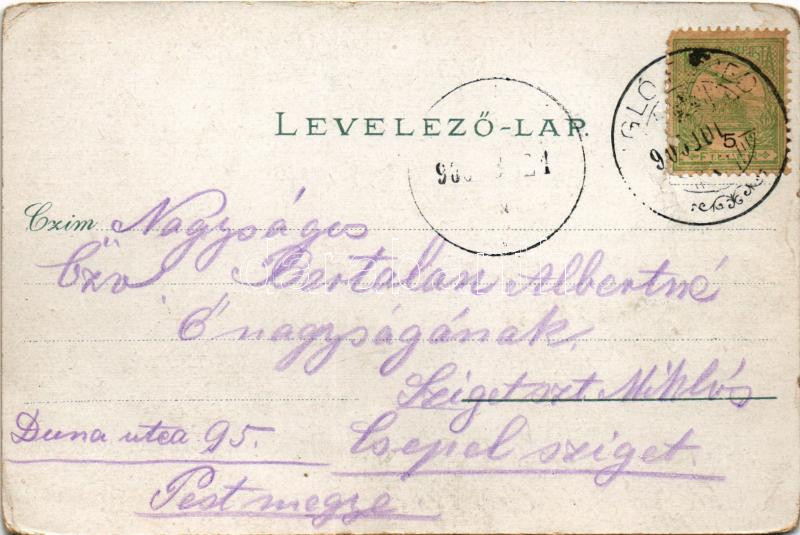 LEVELEZŐ-LAP.
Czim Nagyságos
Özv Bertalan Albertné
Ő nagyságának.
Szigetszt Miklós
Duna utca 95. Csepel sziget
Pest megye
5